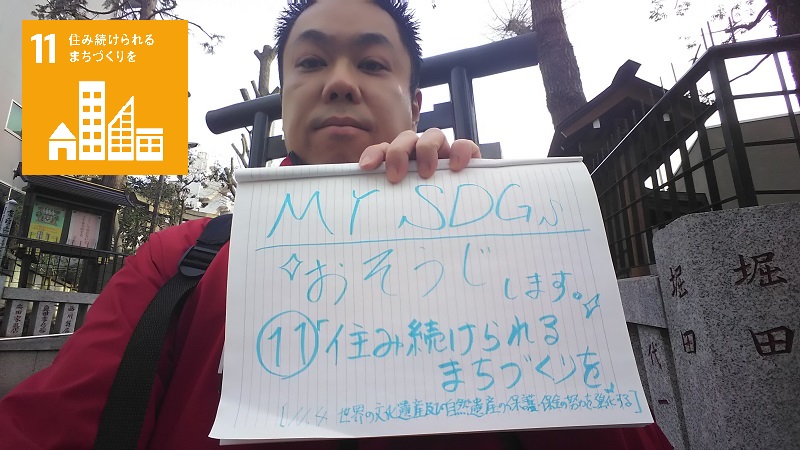 11 住み続けられる
まちづくりを
MY SDGs
おそうじします。
⑪「住み続けられる
まちづくりを
[11.4 世界の文化遺産及び自然遺産の保護・保全の努力を強化する]
堀田
堀田
一代